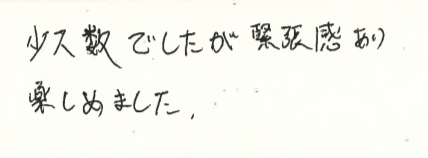 少人数でしたが緊張感あり
楽しめました。